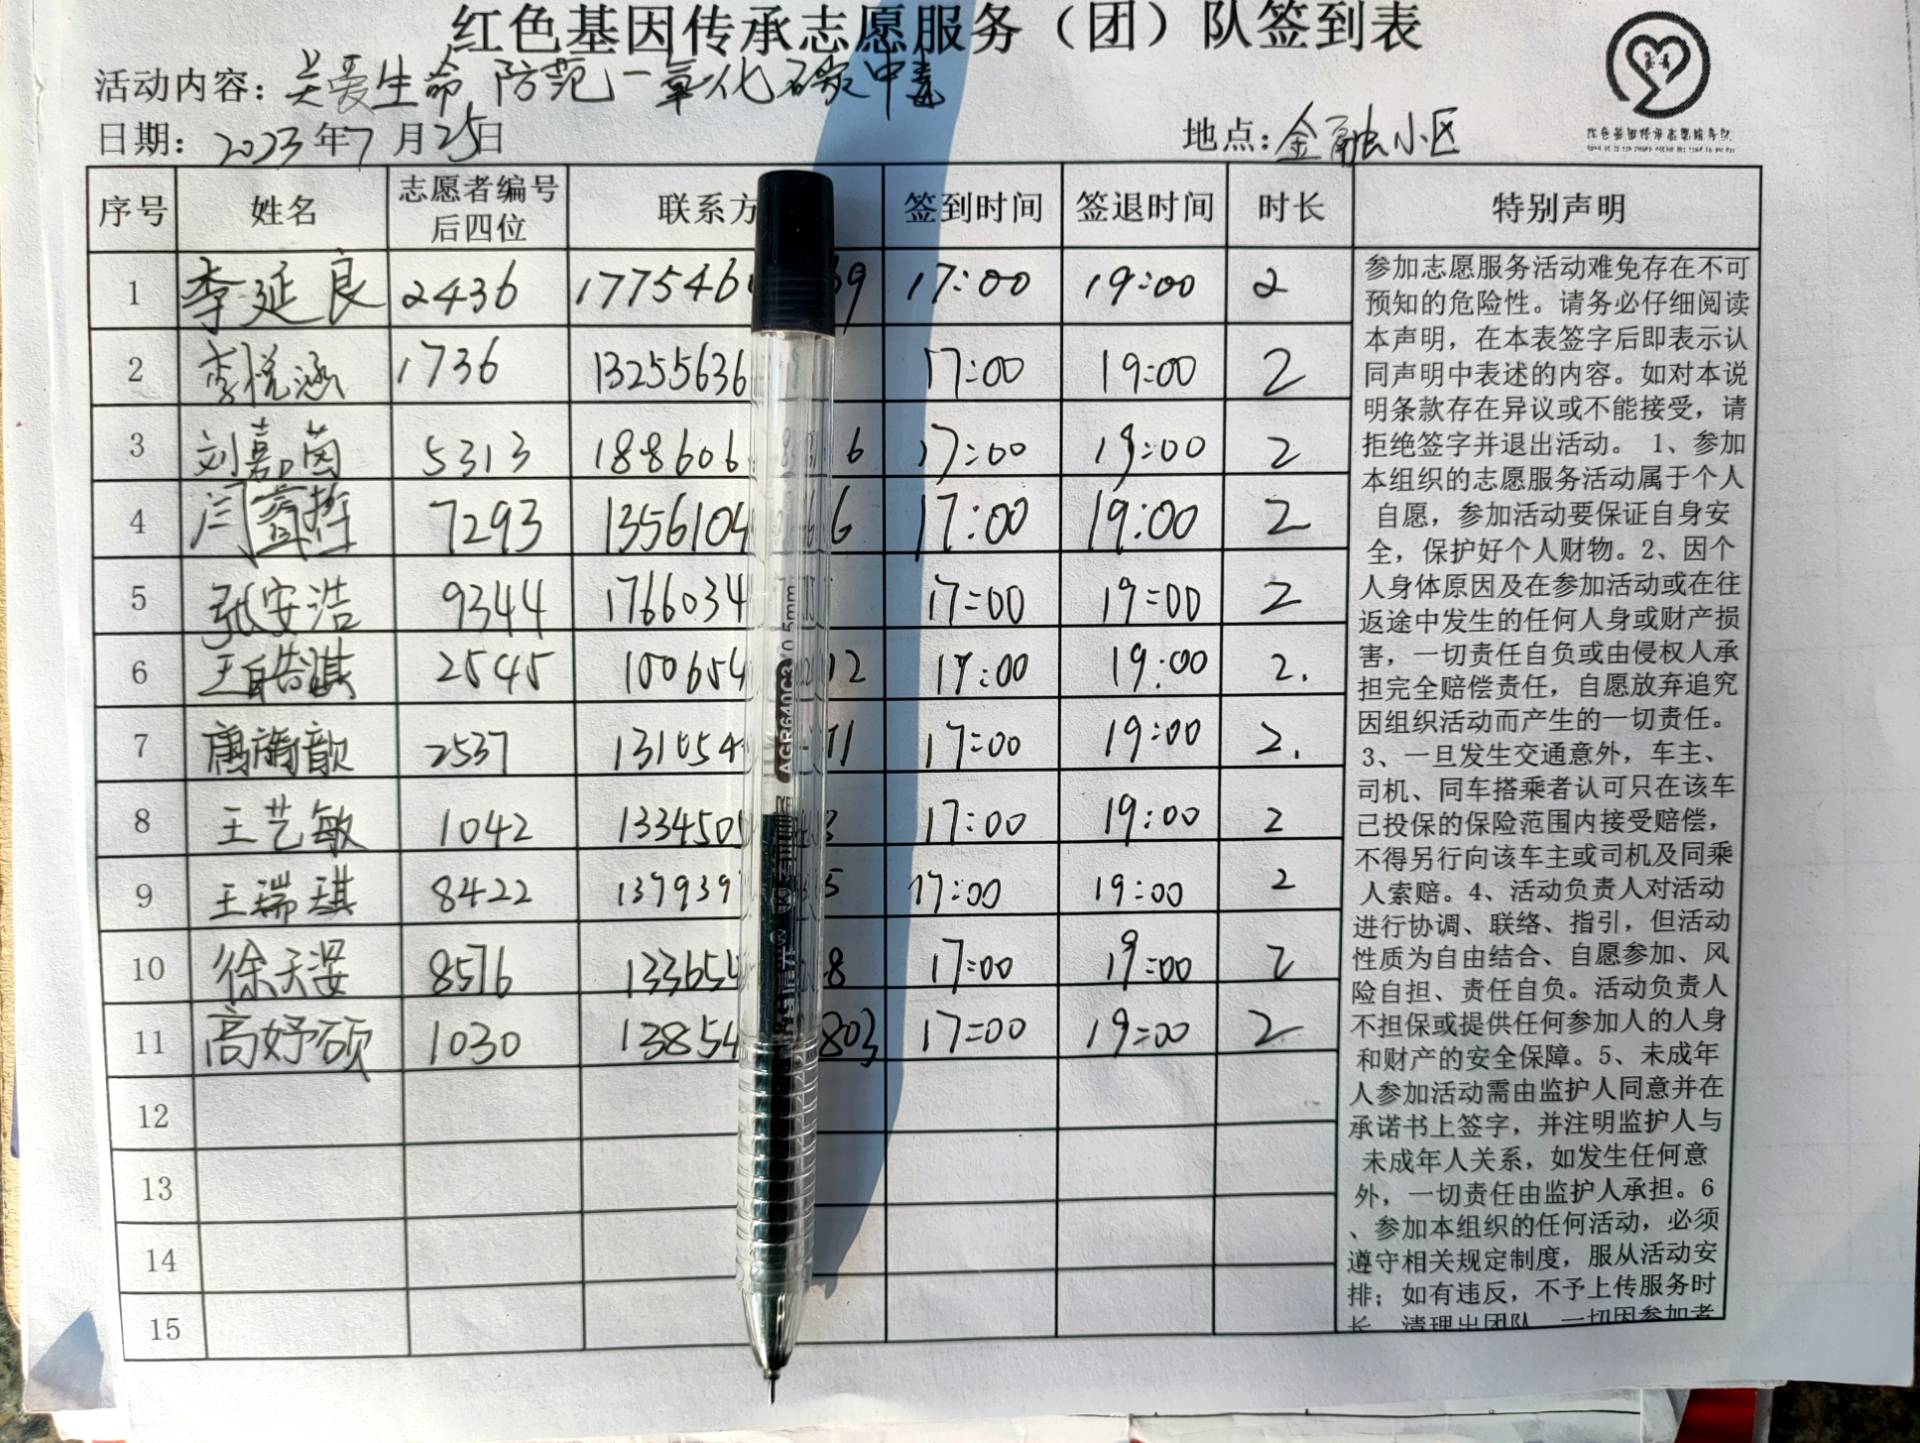 红色基因传承志愿服务（团）队签到表
活动内容：关爱生命 防范一氧化碳中毒
日期：2023年7月25日 地点：金融小区
序号 姓名 志愿者编号后四位 联系方 签到时间 签退时间 时长 特别声明
1 李延良 2436 1775460 39 17:00 19:00 2
2 李悦涵 1736 13255636 17:00 19:00 2
3 刘嘉茵 5313 188606 6 17:00 19:00 2
4 闫 哲 7293 1356104 6 17:00 19:00 2
5 张安浩 9344 1766034 17:00 19:00 2
6 王皓淇 2545 150654 12 17:00 19:00 2.
7 2537 131054 11 17:00 19:00 2.
8 王艺敏 1042 1334501 3 17:00 19:00 2
9 王瑞琪 8422 1379397 5 17:00 19:00 2
10 徐天 8576 133654 8 17:00 19:00 2
11 高妤硕 1030 13854 803 17:00 19:00 2
12
13
14
15
参加志愿服务活动难免存在不可
预知的危险性。请务必仔细阅读
本声明，在本表签字后即表示认
同声明中表述的内容。如对本说
明条款存在异议或不能接受，请
拒绝签字并退出活动。 1、参加
本组织的志愿服务活动属于个人
自愿，参加活动要保证自身安
全，保护好个人财物。2、因个
人身体原因及在参加活动或在往
返途中发生的任何人身或财产损
害，一切责任自负或由侵权人承
担完全赔偿责任，自愿放弃追究
因组织活动而产生的一切责任。
3、一旦发生交通意外，车主、
司机、同车搭乘者认可只在该车
己投保的保险范围内接受赔偿，
不得另行向该车主或司机及同乘
人索赔。4、活动负责人对活动
进行协调、联络、指引，但活动
性质为自由结合、自愿参加、风
险自担、责任自负。活动负责人
不担保或提供任何参加人的人身
和财产的安全保障。5、未成年
人参加活动需由监护人同意并在
承诺书上签字，并注明监护人与
未成年人关系，如发生任何意
外，一切责任由监护人承担。6
、参加本组织的任何活动，必须
遵守相关规定制度，服从活动安
排；如有违反，不予上传服务时
长，清理出团队，一切因参加者
AGR640C3 0.5mm